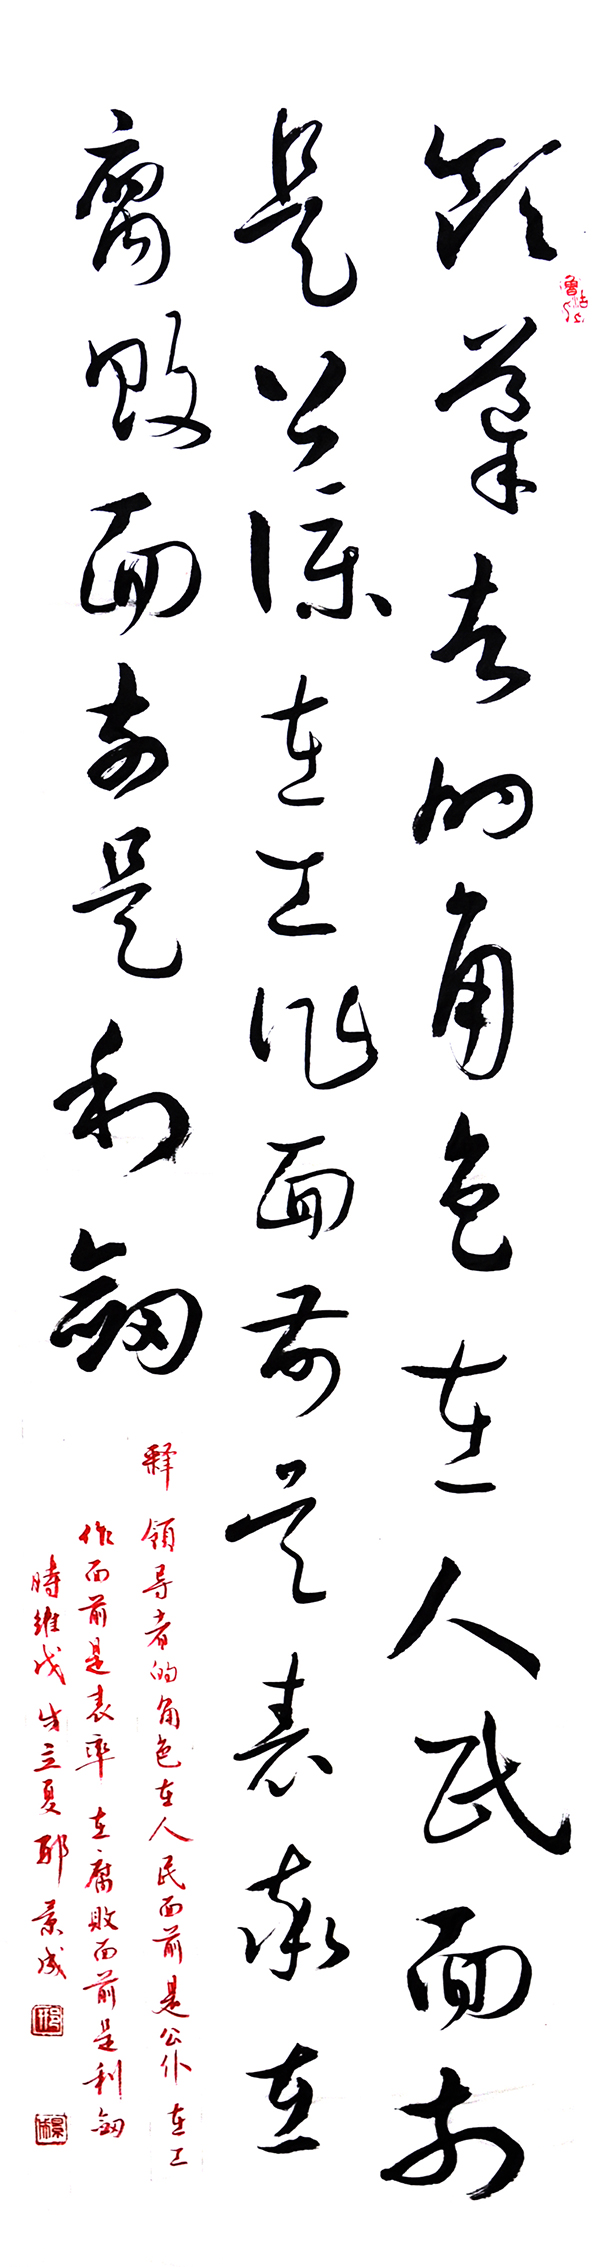 领导者的角色在人民面前
是公僕在工作面前是表率在
腐败面前是利劔
释 领导者的角色在人民面前是公仆在工
作面前是表率在腐败面前是利劔
時維戊戌立夏邢景成